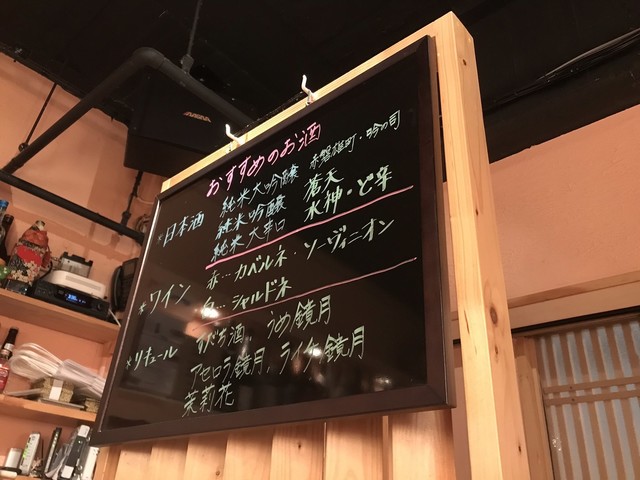 おすすめのお酒
*日本酒 純米大吟醸 赤磐雄町・吟の司
純米吟醸 蒼天
純米大辛口 水神・ど辛
*ワイン 赤…カベルネ・ソーヴィニオン
白…シャルドネ
*リキュール すだち酒 うめ鏡月
アセロラ鏡月、ライチ鏡月
茉莉花